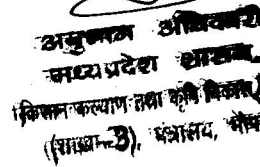 अनुभाग अधिकारी
मध्यप्रदेश शासन,
किसान कल्याण तथा कृषि विकास
(शाखा-3), मंत्रालय, भोप